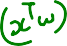 (xᵀw)